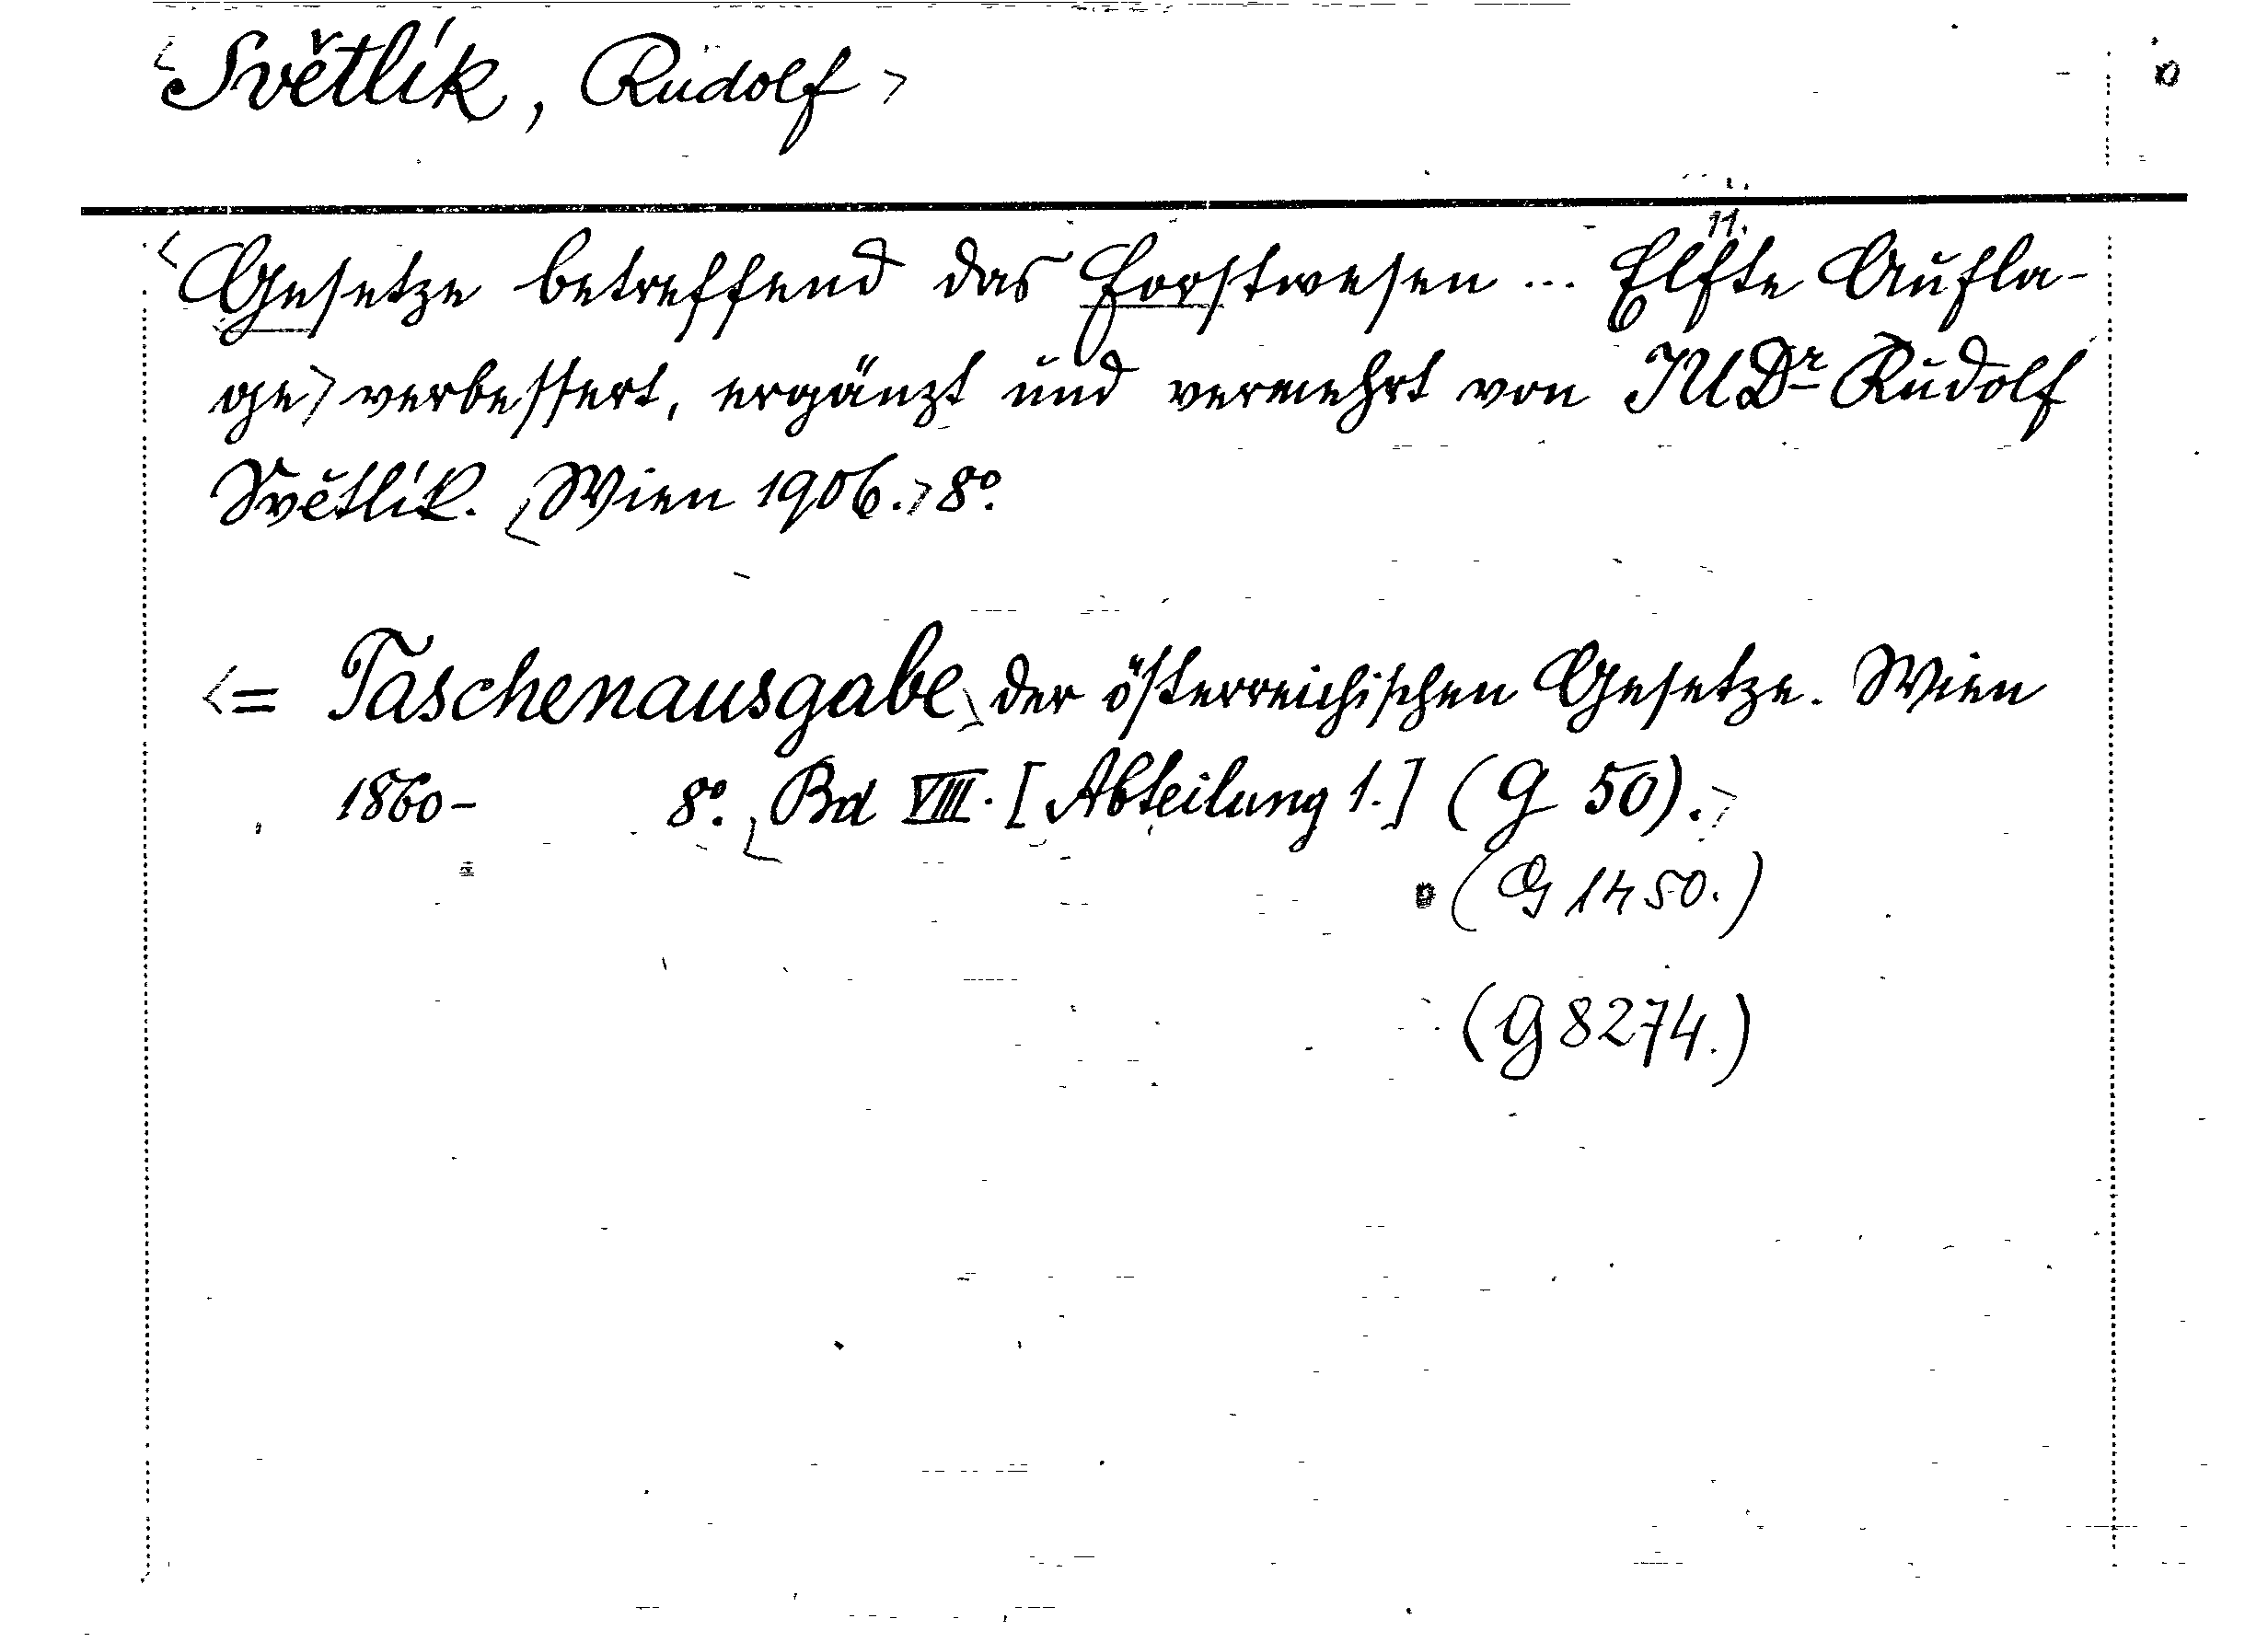 <Světlík, Rudolf>
11.
<Gesetze betreffend das Forstwesen ... Elfte Aufla-
ge> verbessert, ergänzt und vermehrt von JUDr Rudolf
Světlík. <Wien 1906.> 8°.
<= Taschenausgabe> der österreichischen Gesetze. Wien
1860- 8°. <Bd VIII. [Abteilung 1.] (G 50).>
(G 1450.)
(G 8274.)